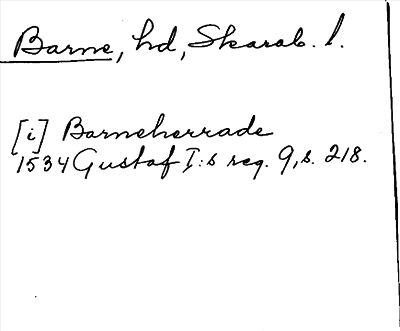 Barne, hd, Skarab. l.
[i] Barneherrade
1534 Gustaf I:s reg. 9, s. 218.